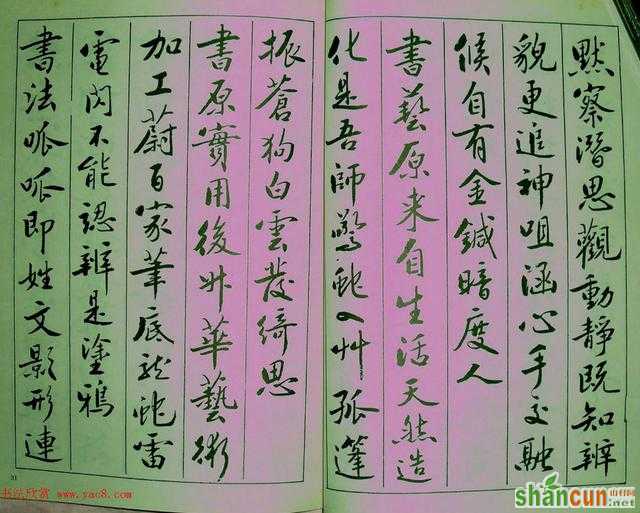 默察潛思觀動靜既知辨
貌更追神咀涵心手交融
候自有金鍼暗度人
書藝原来自生活天然造
化是吾師驚蛇入艸孤蓬
振蒼狗白雲發綺思
書原實用後升華藝術
加工蔚百家筆底龍蛇雷
電閃不能認辨是塗鴉
書法呱呱即姓文影形連
31
书法欣赏 www.yac8.com
shancun.net
山村网